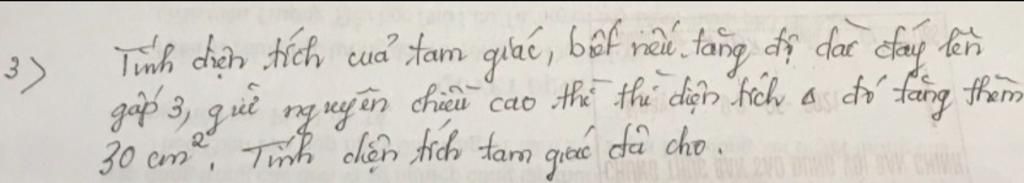 3) Tính diện tích của tam giác, biết nếu tăng độ dài đáy lên
gấp 3, giữ nguyên chiều cao thì thì diện tích Δ đó tăng thêm
30 cm². Tính diện tích tam giác đã cho.